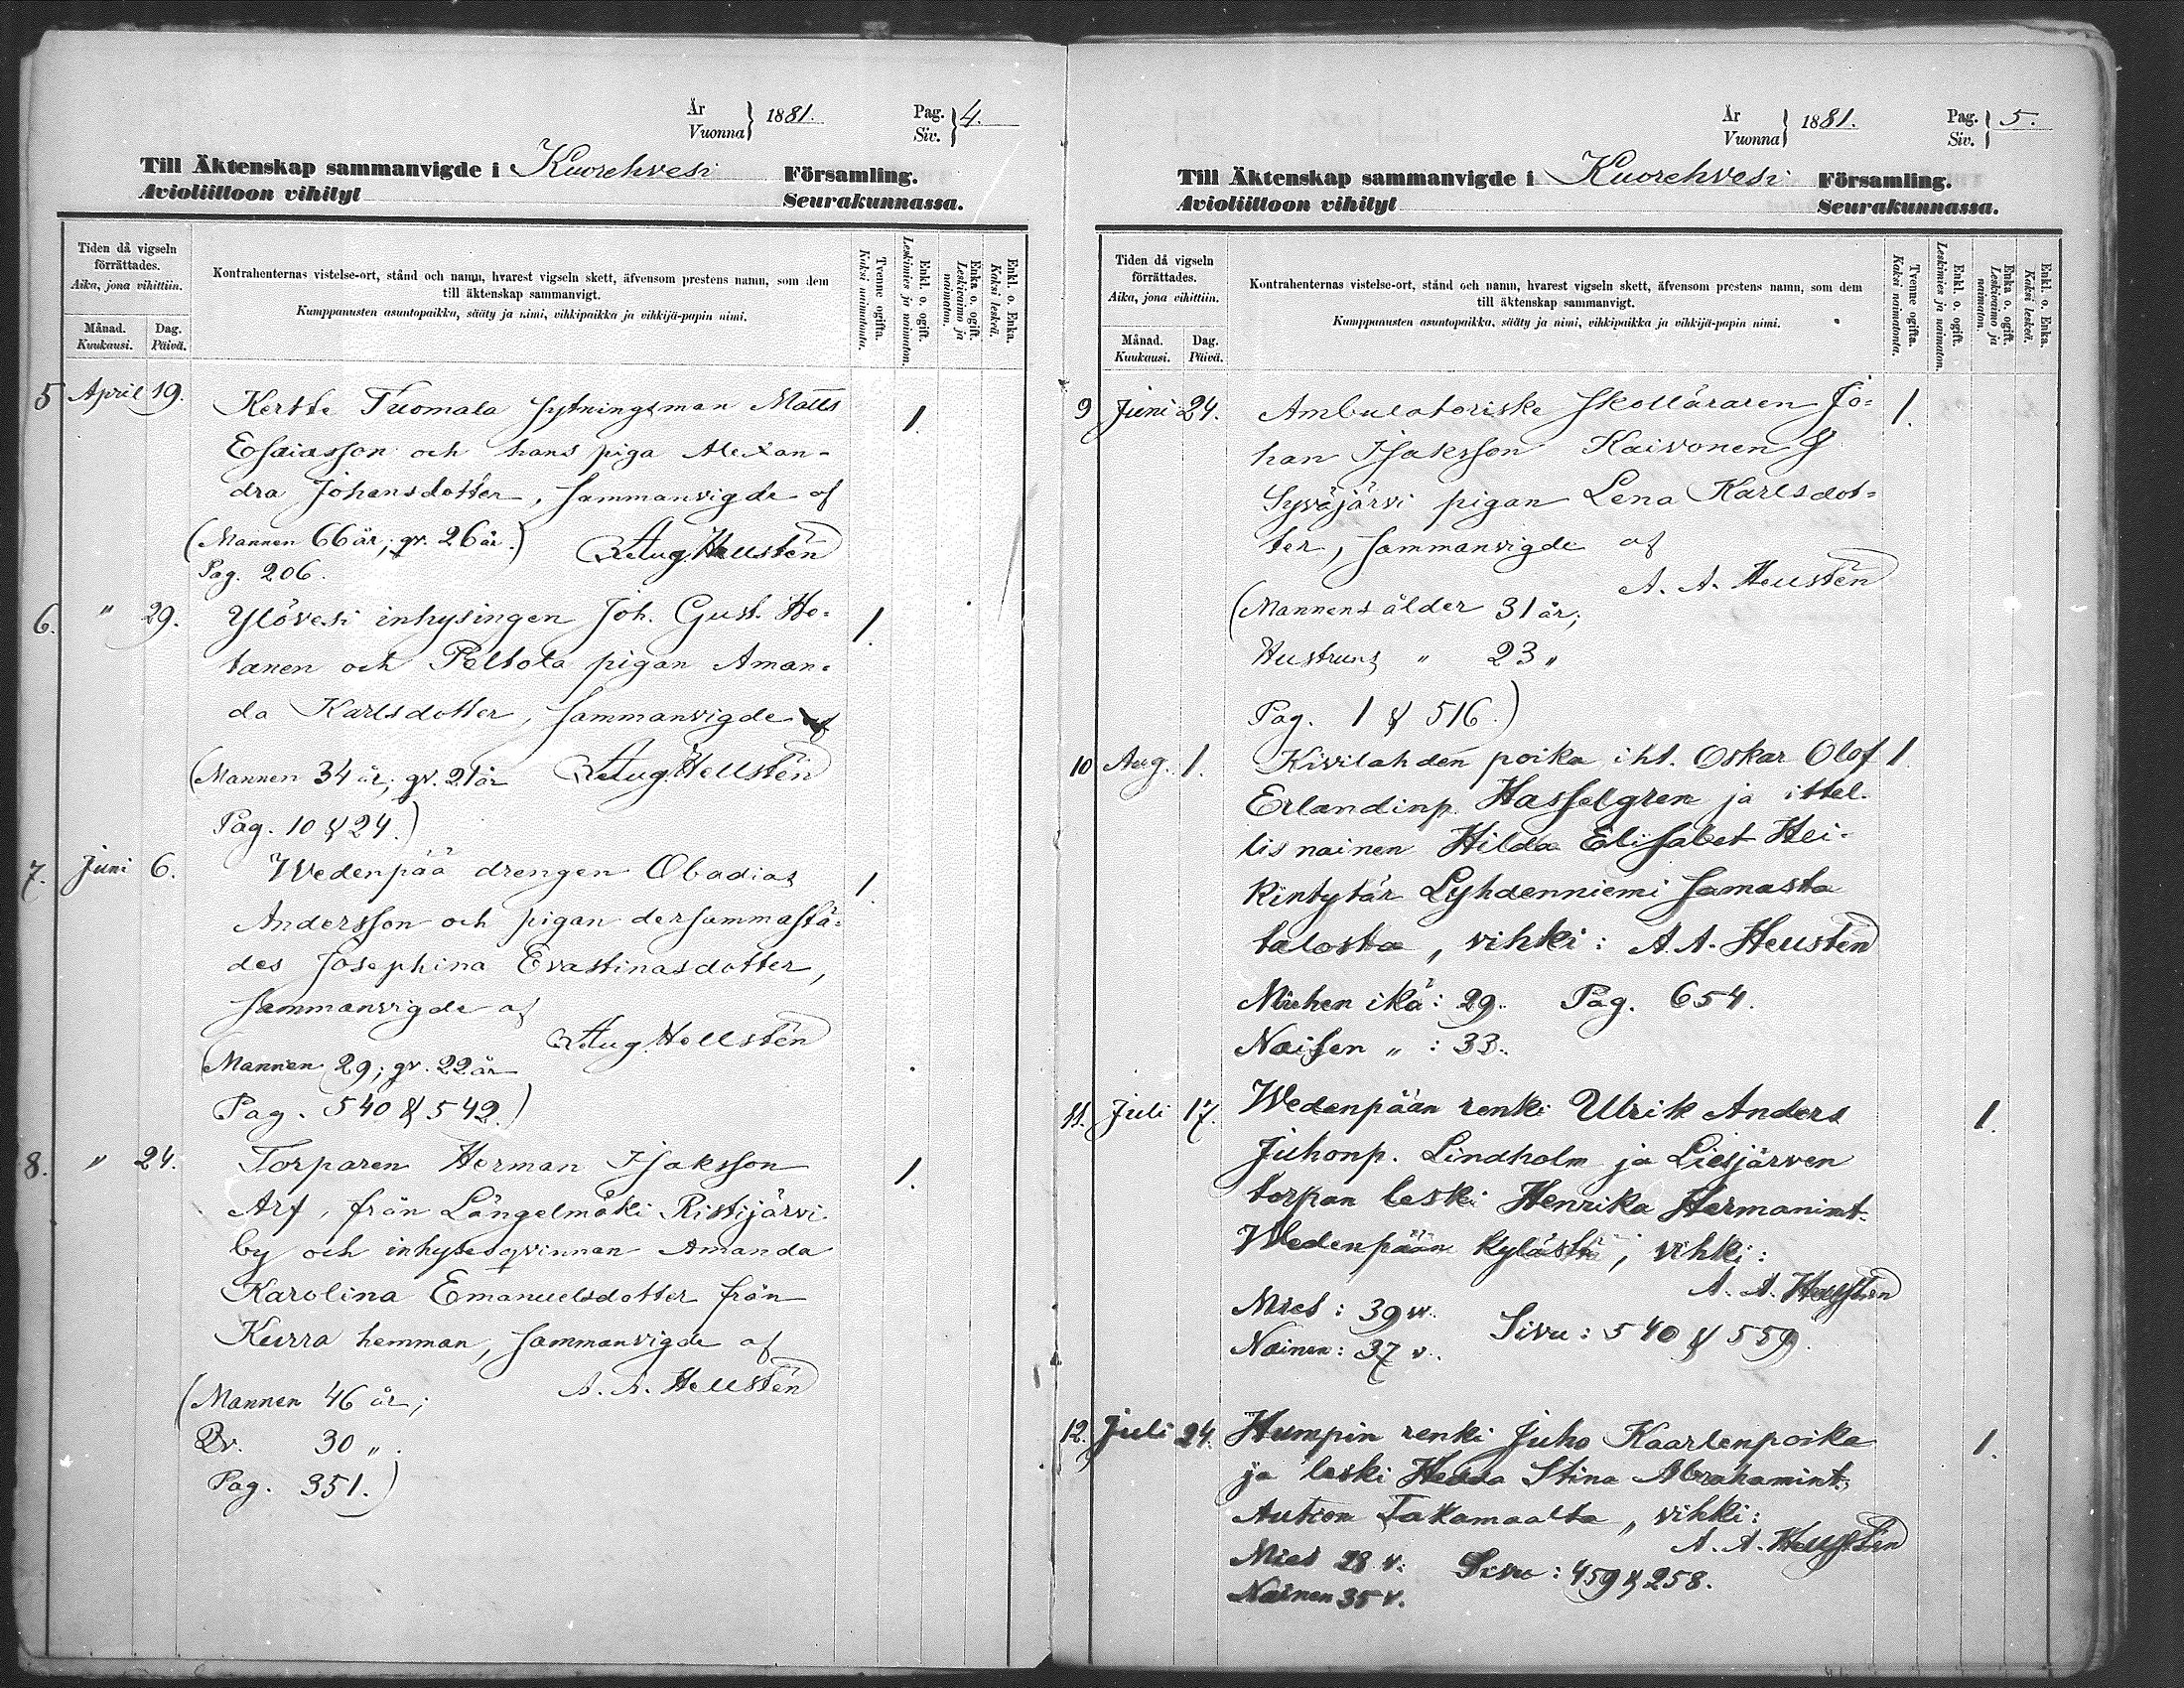 År
Vuonna } 1881.
Pag.
Siv. } 4.
Till Äktenskap sammanvigde i Kuorehvesi Församling.
Avioliittoon vihityt Seurakunnassa.
Tiden då vigseln
förrättades.
Aika, jona vihittiin.
Månad.
Kuukausi.
Dag.
Päivä.
Kontrahenternas vistelse-ort, stånd och namn, hvarest vigseln skett, äfvensom prestens namn, som dem
till äktenskap sammanvigt.
Kumppanusten asuntopaikka, sääty ja nimi, vihkipaikka ja vihkijä-papin nimi.
Tvenne ogifta.
Kaksi naimatonta.
Enkl. o. ogift.
Leskimies ja naimaton.
Enka o. ogift.
Leskivaimo ja
naimaton.
Enkl. o. Enka.
Kaksi leskeä.
5 April 19. Kertte Tuomala sytningsman Matts 1.
Esaiasson och hans piga Alexan-
dra Johansdotter, sammanvigde af
(Mannen 66 år; qv. 26 år.) Aug. Hellstén
Pag. 206.
6. " 29. Ylövesi inhysingen Joh. Gust. Ho- 1.
tanen och Peltola pigan Aman-
da Karlsdotter, sammanvigde af
(Mannen 34 år; qv. 21 år Aug. Hellstén
Pag. 10 & 24.)
7. Juni 6. Wedenpää drengen Obadias 1.
Andersson och pigan dersammastä-
des Josephina Evastinasdotter,
sammanvigde af
Aug. Hellstén
(Mannen 29; qv. 22 år
Pag. 540 & 542.)
8. " 24. Torparen Herman Isaksson 1.
Arf, från Längelmäki Ristijärvi
by och inhysesqvinnan Amanda
Karolina Emanuelsdotter från
Kurra hemman, sammanvigde af
A. A. Hellstén
(Mannen 46 år;
Qv. 30 ".
Pag. 351.)
År
Vuonna } 1881.
Pag.
Siv. } 5.
Till Äktenskap sammanvigde i Kuorehvesi Församling.
Avioliittoon vihityt Seurakunnassa.
Tiden då vigseln
förrättades.
Aika, jona vihittiin.
Månad.
Kuukausi.
Dag.
Päivä.
Kontrahenternas vistelse-ort, stånd och namn, hvarest vigseln skett, äfvensom prestens namn, som dem
till äktenskap sammanvigt.
Kumppanusten asuntopaikka, sääty ja nimi, vihkipaikka ja vihkijä-papin nimi.
Tvenne ogifta.
Kaksi naimatonta.
Enkl. o. ogift.
Leskimies ja naimaton.
Enka o. ogift.
Leskivaimo ja
naimaton.
Enkl. o. Enka.
Kaksi leskeä.
9 Juni 24. Ambulatoriske skolläraren Jo= 1.
han Isaksson Kaivonen &
Syväjärvi pigan Lena Karlsdot=
ter, sammanvigde af
A. A. Hellstén
(Mannens ålder 31 år;
Hustruns " 23 "
Pag. 1 & 516.)
10 Aug. 1. Kivilahden poika iht. Oskar Olof 1
Erlandinp. Hasselgren ja ittel.
lis nainen Hilda Elisabet Hei-
kintytär Lyhdenniemi samasta
talosta, vihki: A. A. Hellstén
Miehen ikä: 29.. Pag. 654.
Naisen " : 33..
11. Juli 17. Wedenpään renki Ulrik Anders 1.
Juhonp. Lindholm ja Liesjärven
torpan leski Henrika Hermanint.
Wedenpään kylästä, vihki:
A. A. Hellstén
Mies: 39 v.
Nainen: 37 v. Sivu: 540 & 559.
12. Juli 24. Humpin renki Juho Kaarlenpoika 1.
ja leski Hedda Stina Abrahamint.
Aution Takamaalta, vihki:
A. A. Hellstén
Mies 28 v. Sivu: 459 & 258.
Nainen 35 v.